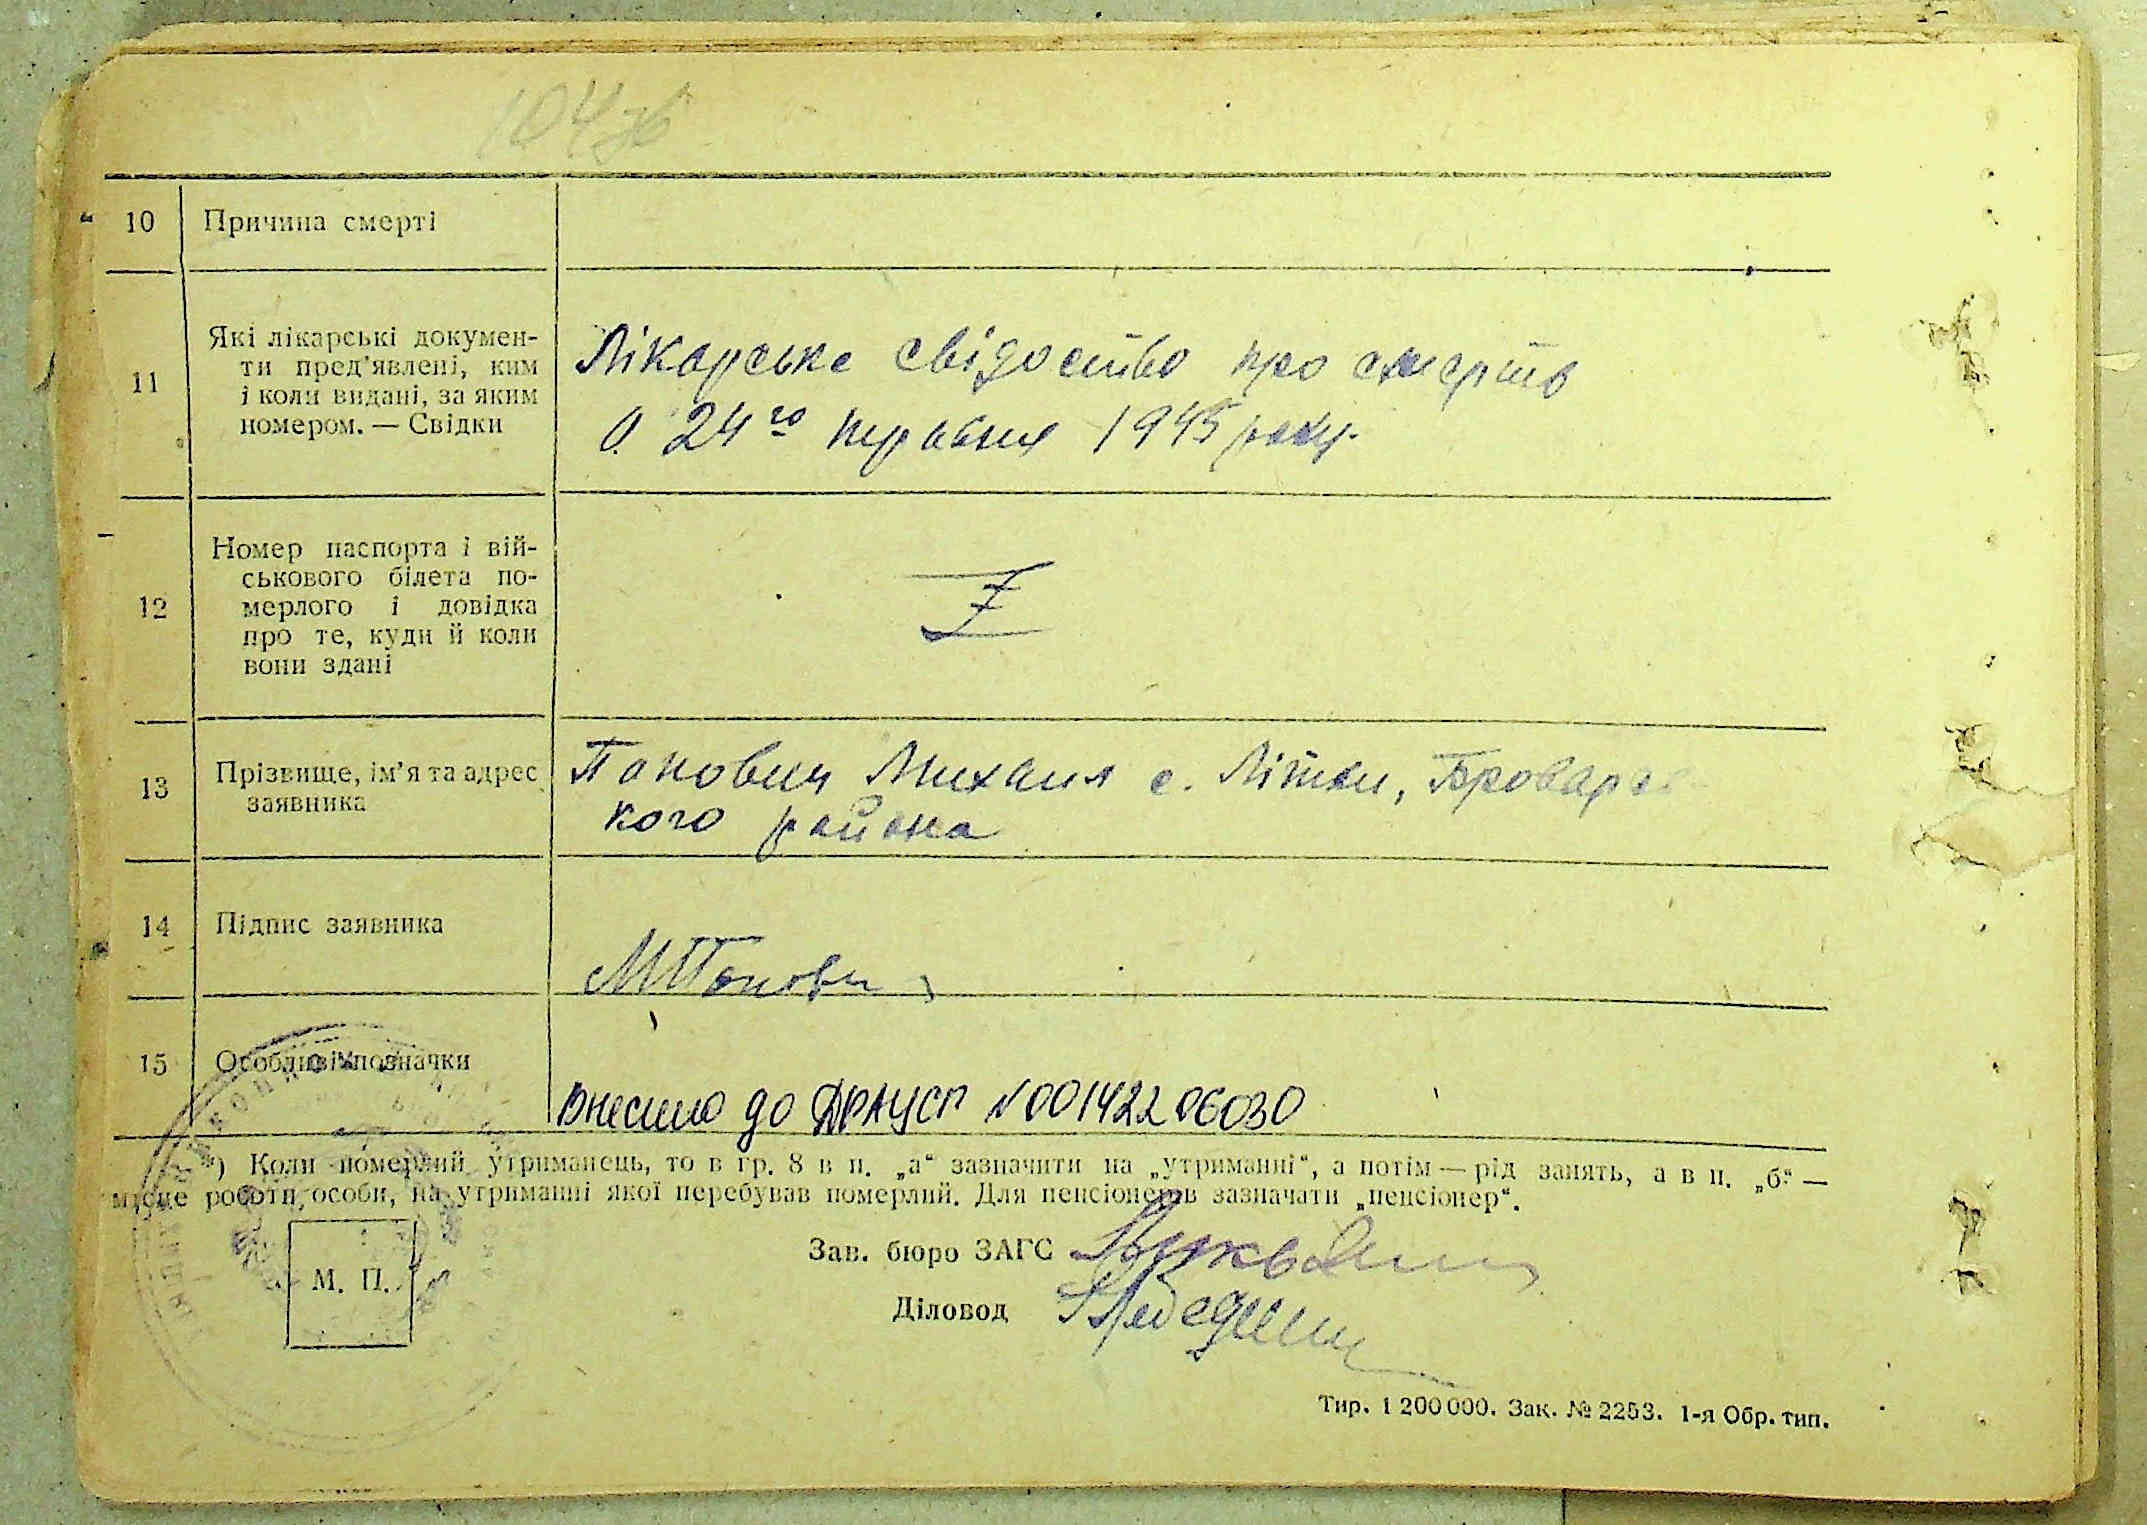 104зв
10 Причина смерті
11 Які лікарські докумен-
ти пред'явлені, ким
і коли видані, за яким
номером. — Свідки
Лікарське свідоство про смерть
24го 1945 року.
12 Номер паспорта і вій-
ськового білета по-
мерлого і довідка
про те, куди й коли
вони здані
Z
13 Прізвище, ім'я та адрес
заявника
Панович Михаил с. Літки, Броварсь
кого района
14 Підпис заявника
МПанович
15 Особливі позначки
Внесено до ДРАЦСГ №00142206030
*) Коли померлий утриманець, то в гр. 8 в п. „а“ зазначити на „утриманні“, а потім — рід занять, а в п. „б“ —
місце роботи, особи, на утриманні якої перебував померлий. Для пенсіонерів зазначати „пенсіонер“.
Зав. бюро ЗАГС
М. П.
Діловод
Тир. 1 200 000. Зак. № 2253. 1-я Обр. тип.